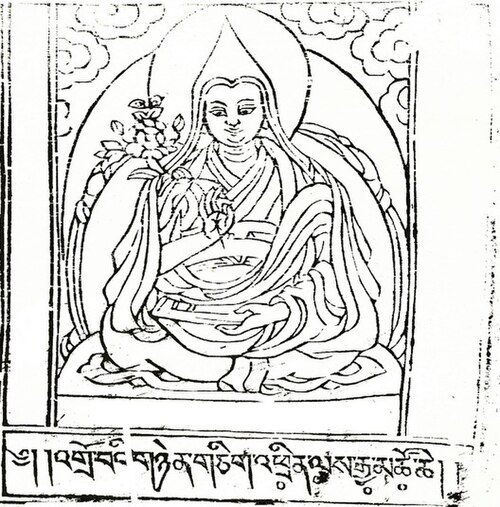 ༄། །འགྲོ་བའི་གཉེན་གཅིག་འཕྲིན་ལས་རྒྱ་མཚོ་ཆེ། །